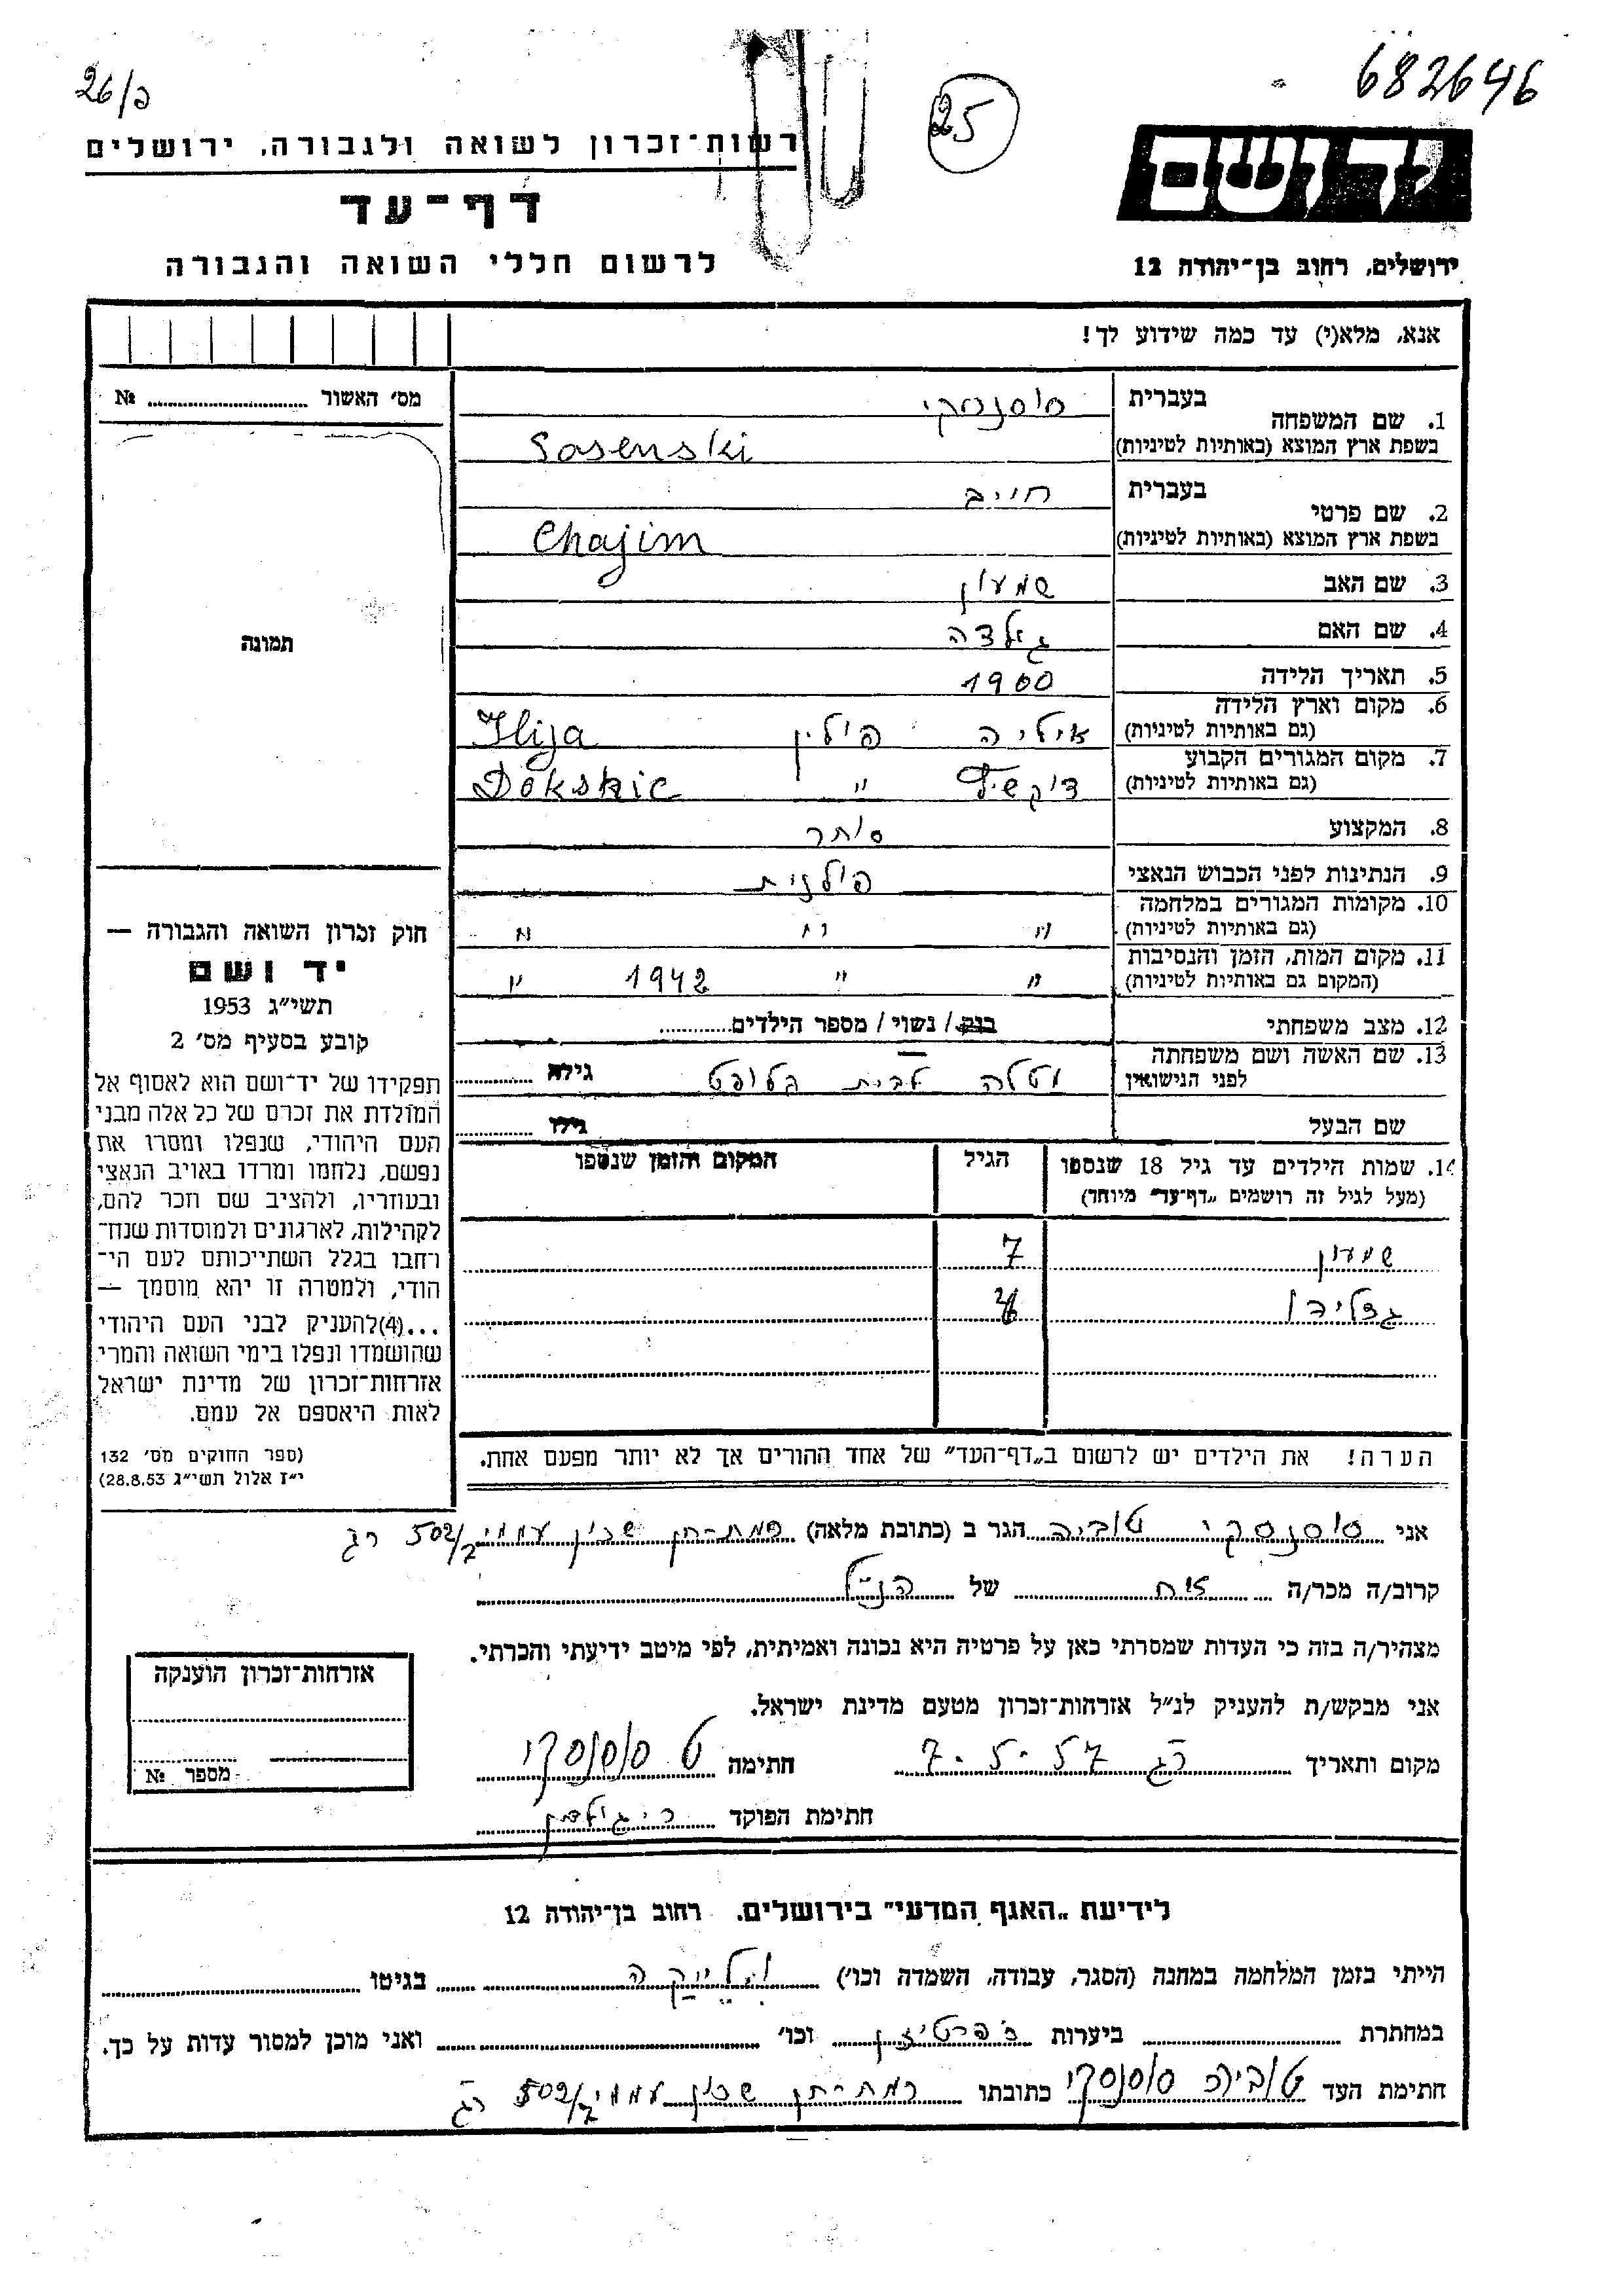 26/פ
25
682646
רשות־זכרון לשואה ולגבורה, ירושלים
יד ושם
דף־עד
לרשום חללי השואה והגבורה
ירושלים, רחוב בן־יהודה 12
אנא, מלא(י) עד כמה שידוע לך!
מס׳ האשור ........ №
תמונה
חוק זכרון השואה והגבורה —
יד ושם
תשי״ג 1953
קובע בסעיף מס׳ 2
תפקידו של יד־ושם הוא לאסוף אל
המולדת את זכרם של כל אלה מבני
העם היהודי, שנפלו ומסרו את
נפשם, נלחמו ומרדו באויב הנאצי
ובעוזריו, ולהציב שם וזכר להם,
לקהילות, לארגונים ולמוסדות שנח־
רחבו בגלל השתייכותם לעם הי־
הודי, ולמטרה זו יהא מוסמך —
...(4)להעניק לבני העם היהודי
שהושמדו ונפלו בימי השואה והמרי
אזרחות־זכרון של מדינת ישראל
לאות היאספם אל עמם.
(ספר החוקים מס׳ 132
י״ז אלול תשי״ג 28.8.53)
1. שם המשפחה
בעברית סוסנסקי
בשפת ארץ המוצא (באותיות לטיניות) Sosenski
2. שם פרטי
בעברית חיים
בשפת ארץ המוצא (באותיות לטיניות) Chajim
3. שם האב שמעון
4. שם האם גאלדה
5. תאריך הלידה 1900
6. מקום וארץ הלידה
(גם באותיות לטיניות) איליה פולין Ilija
7. מקום המגורים הקבוע
(גם באותיות לטיניות) דוקשיץ " Dokshic
8. המקצוע סוחר
9. הנתינות לפני הכבוש הנאצי פולנית
10. מקומות המגורים במלחמה
(גם באותיות לטיניות) " " "
11. מקום המות, הזמן והנסיבות
(המקום גם באותיות לטיניות) " " 1942 "
12. מצב משפחתי רווק / נשוי / מספר הילדים
13. שם האשה ושם משפחתה
לפני הנישואין לבית גילה
שם הבעל גילו
14. שמות הילדים עד גיל 18 שנספו הגיל המקום והזמן שנספו
(מעל לגיל זה רושמים „דף־עד״ מיוחד)
שמעון 7
הערה! את הילדים יש לרשום ב„דף־העד״ של אחד ההורים אך לא יותר מפעם אחת.
אני סוסנסקי טוביה הגר ב (כתובת מלאה) שכון עממי 502/7 רג
קרוב/ה מכר/ה אח של הנ״ל
מצהיר/ה בזה כי העדות שמסרתי כאן על פרטיה היא נכונה ואמיתית, לפי מיטב ידיעתי והכרתי.
אני מבקש/ת להעניק לנ״ל אזרחות־זכרון מטעם מדינת ישראל.
מקום ותאריך רג 7.5.57 חתימה ט סוסנסקי
חתימת הפוקד
אזרחות־זכרון הוענקה
מספר №
לידיעת „האגף המדעי״ בירושלים, רחוב בן־יהודה 12
הייתי בזמן המלחמה במחנה (הסגר, עבודה, השמדה וכו׳) בגיטו
במחתרת ביערות וכו׳ ואני מוכן למסור עדות על כך.
חתימת העד טוביה סוסנסקי כתובתו שכון עממי 502/7 רג